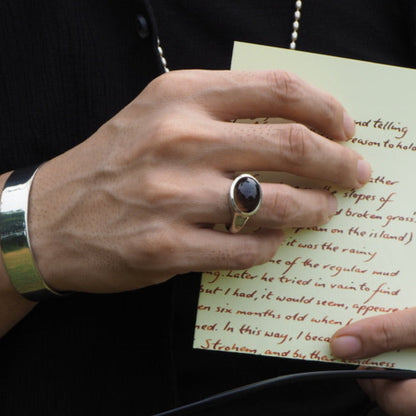 nd telling
reason to hold
ther
slopes of
nd broken grass
ean on the island)
it was the rainy
one of the regular mud
ng. Later he tried in vain to find
but I had, it would seem, appeare
en six months old when
ned. In this way, I beca
Strohem, and by